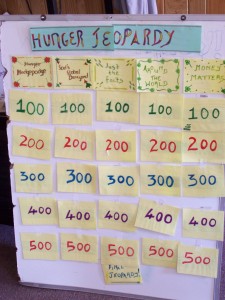 HUNGER JEOPARDY
Hunger
Hodgepodge
Just
the Facts
AROUND
THE WORLD
MONEY
MATTERS
100 100 100 100 100
200 200 200 200 200
300 300 300 300 300
400 400 400 400 400
500 500 500 500 500
FINAL
JEOPARDY